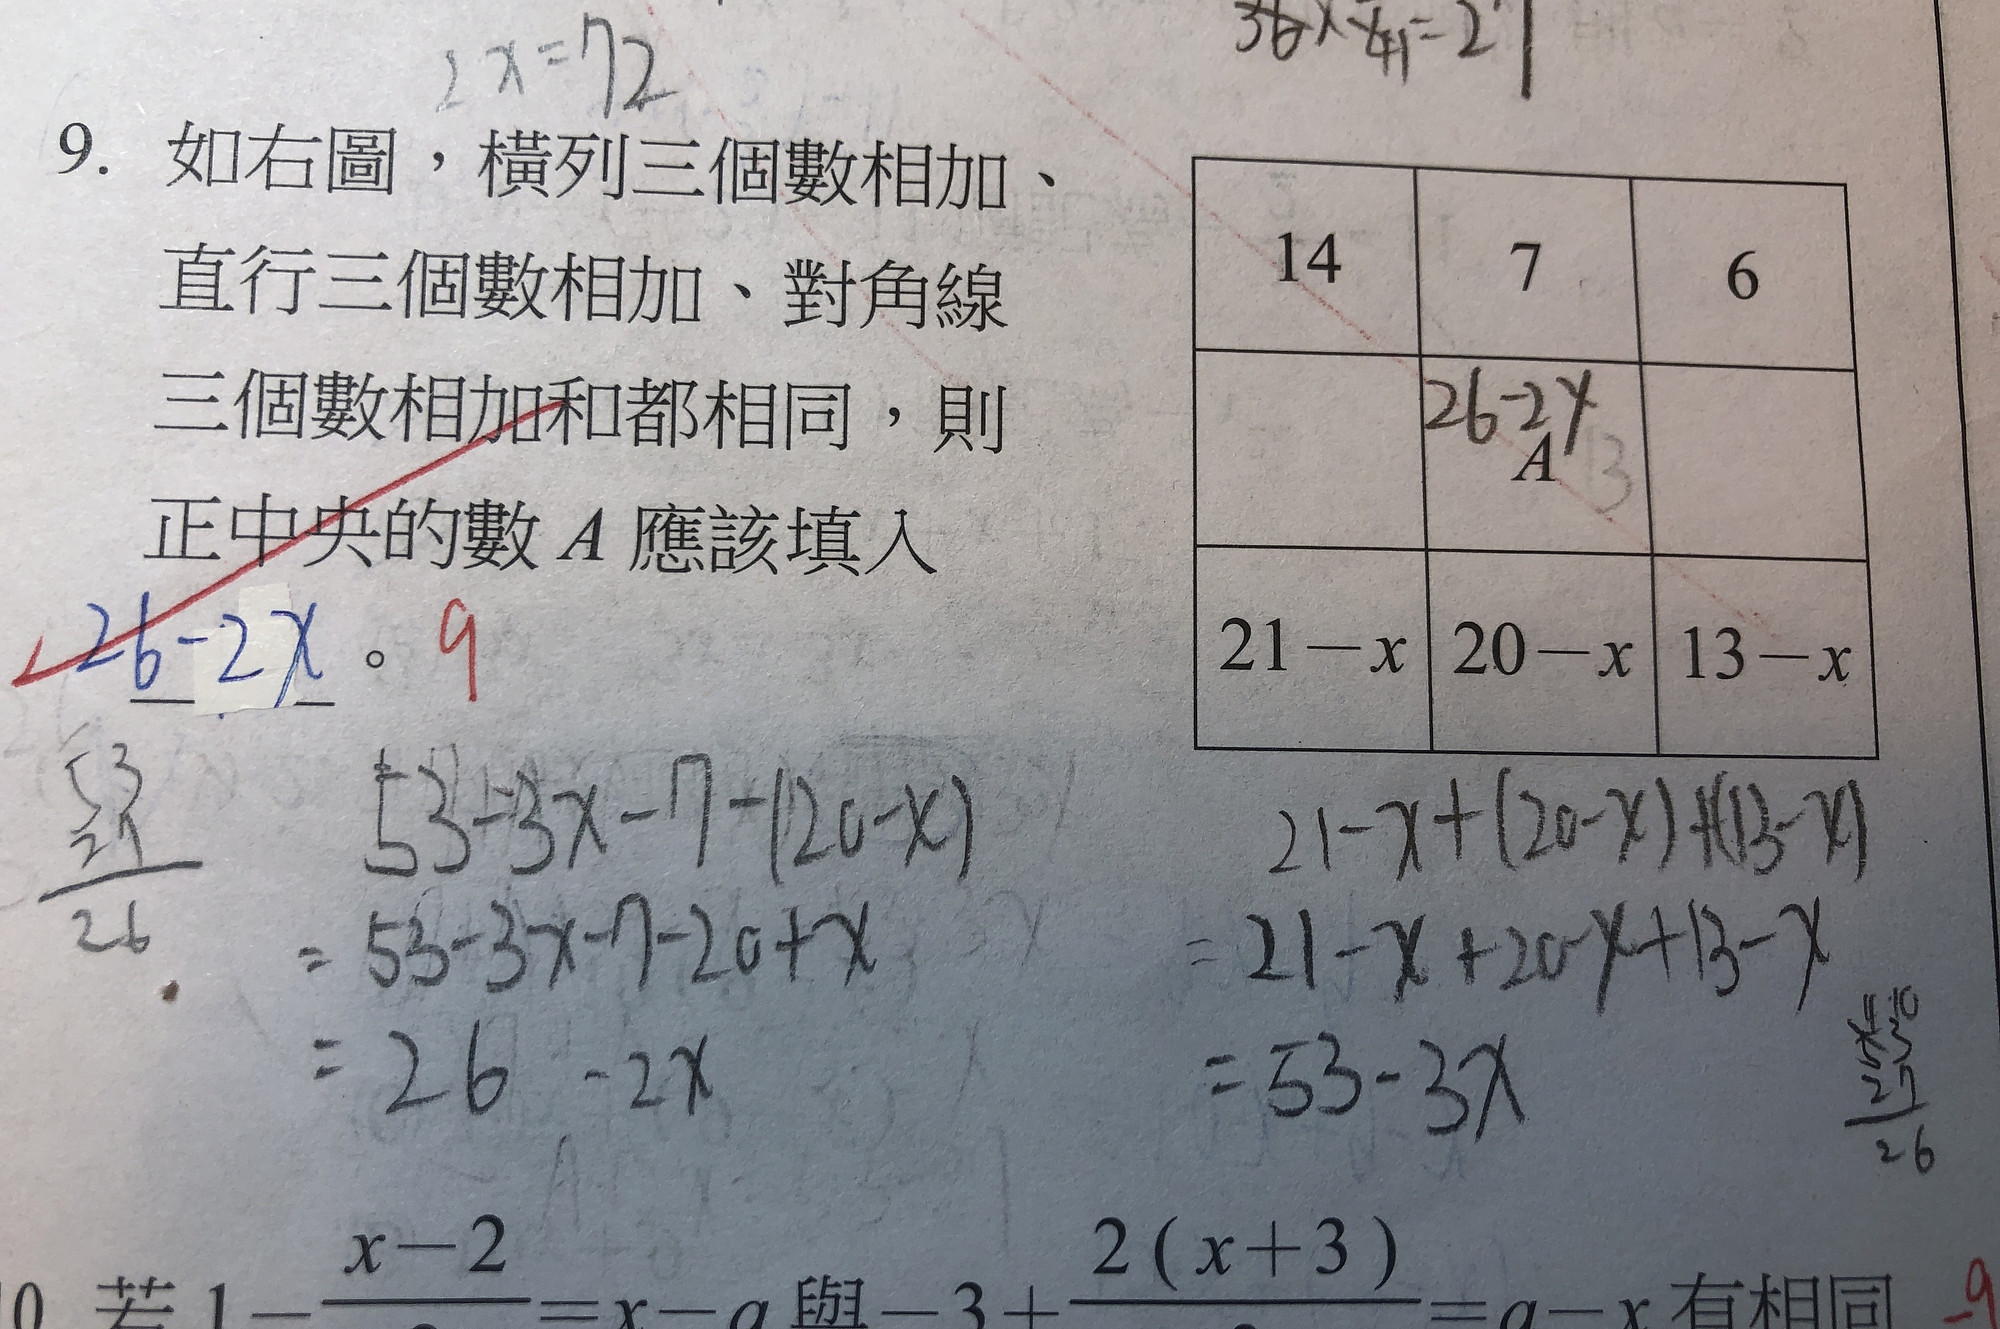 2x=72
9. 如右圖，橫列三個數相加、
直行三個數相加、對角線
三個數相加和都相同，則
正中央的數 A 應該填入
26-2x 。 9
14 7 6
26-2x
A 13
21－x 20－x 13－x
53
27
26
53-3x-7-(20-x)
=53-3x-7-20+x
=26 -2x
21-x+(20-x)+(13-x)
=21-x+20-x+13-x
=53-3x
27
26
x－2 2(x+3)
若 1－ ＝x－a 與－3＋ ＝a－x 有相同
-9